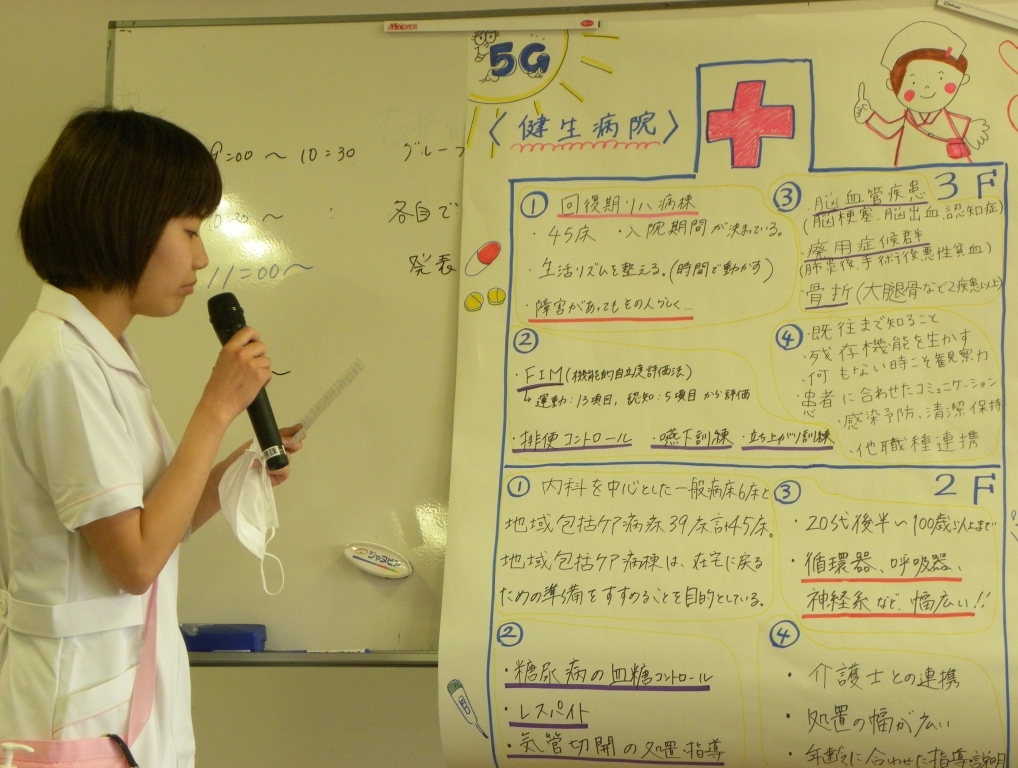 5G
〈健生病院〉
9:00 ～ 10:30
グループ
各自で
11:00～
発表
3F
① 回復期リハ病棟
・45床 ・入院期間が決まっている。
・生活リズムを整える。(時間で動かす)
・障害があってもその人らしく…
②
・FIM(機能的自立度評価法)
↳運動:13項目, 認知:5項目から評価
・排便コントロール ・嚥下訓練 ・立ち上がり訓練
③
・脳血管疾患
(脳梗塞、脳出血、認知症)
・廃用症候群
(肺炎後、手術後、悪性貧血)
・骨折(大腿骨など2疾患以上)
④
・既往まで知ること
・残存機能を生かす
・何もない時こそ観察力
・患者に合わせたコミュニケーション
・感染予防、清潔保持
・他職種連携
2F
① 内科を中心とした一般病床6床と
地域包括ケア病床39床計45床。
地域包括ケア病棟は、在宅に戻る
ための準備をすすめることを目的としている。
②
・糖尿病の血糖コントロール
・レスパイト
・気管切開の処置・指導
③
・20代後半～100歳以上まで
循環器、呼吸器、
神経系など、幅広い!!
④
・介護士との連携
・処置の幅が広い
・年齢に合わせた指導・説明
ジャヌビア